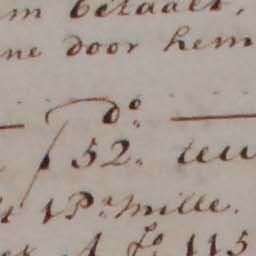 m betaalt,
ne door hem
— do. —
ƒ 52.
1 Pr. mille.
115